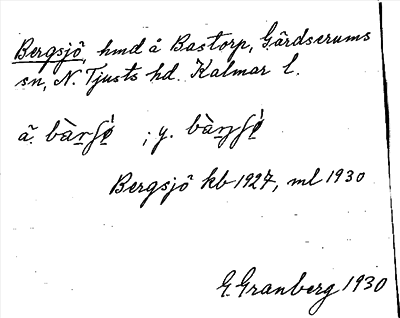 Bergsjö, hmd å Bastorp, Gärdserums
sn, N. Tjusts hd. Kalmar l.
ä. bàrʃö́ ; y. bàrʃö́
Bergsjö kb 1927, ml 1930
G. Granberg 1930